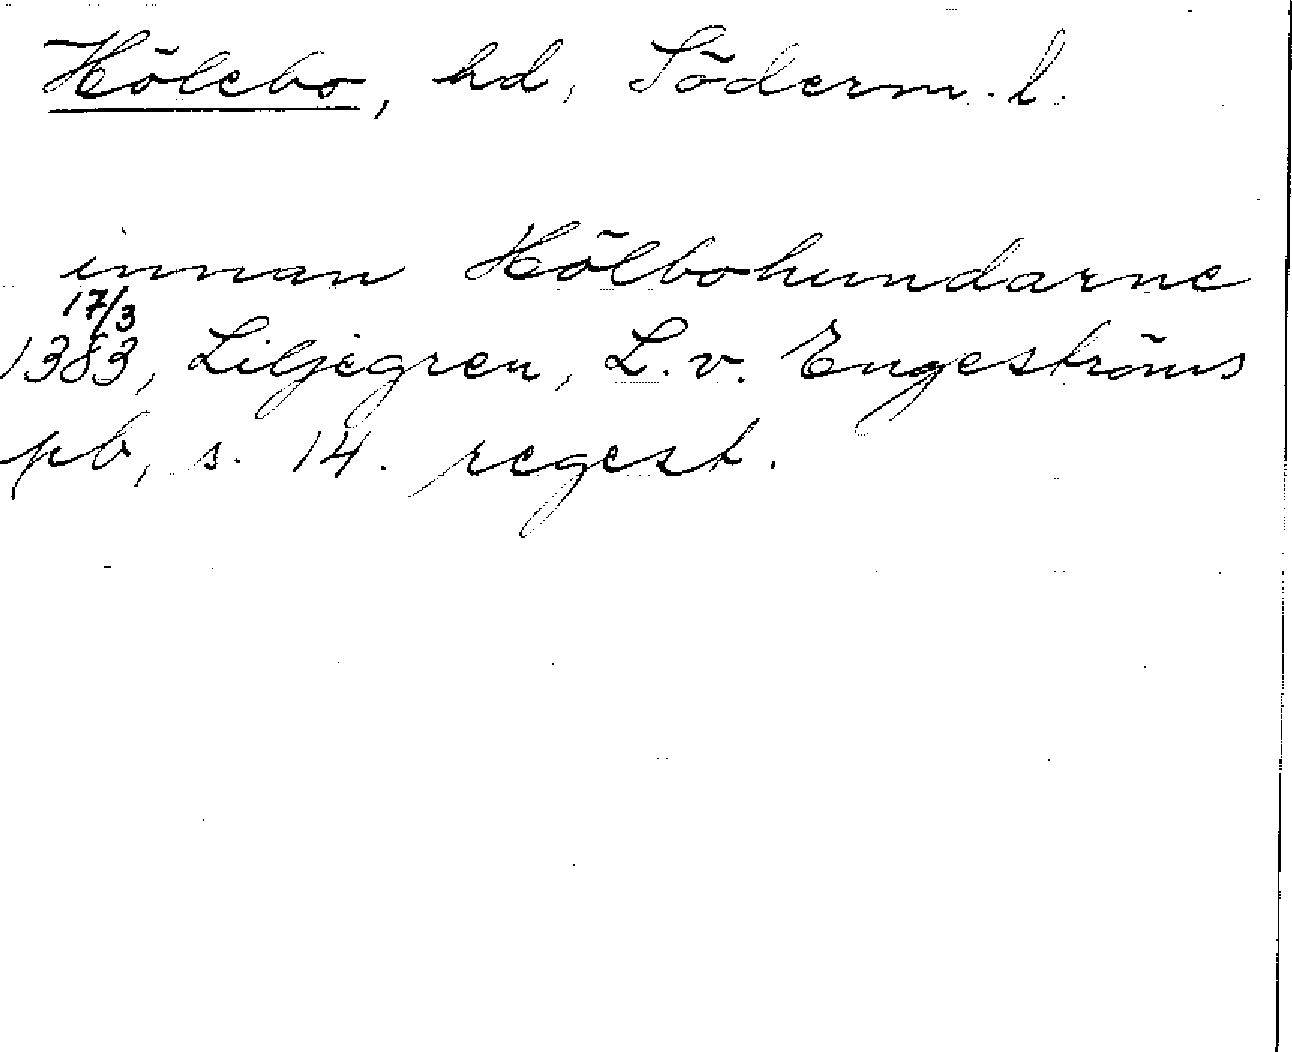 Hölebo, hd, Söderm. l.
innan Hölbohundarne
17/3
1383, Liljegren, L. v. Engeströms
pb, s. 14. regest.